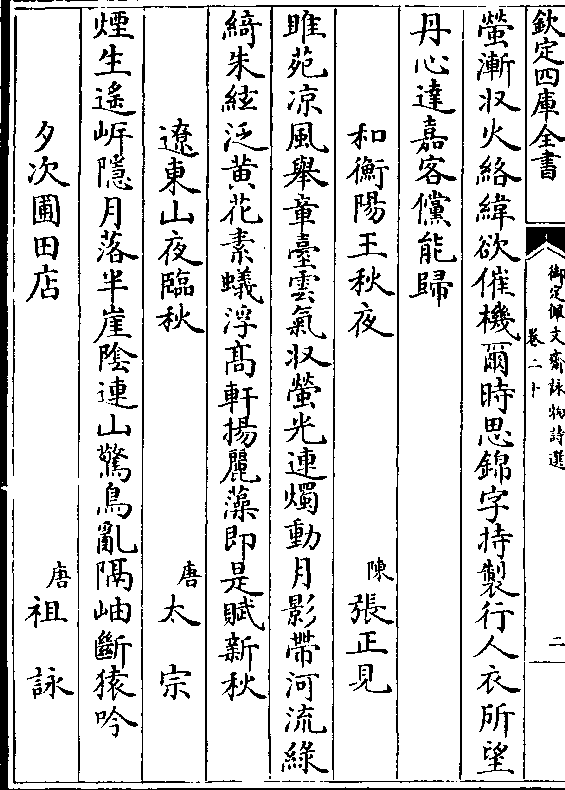 欽定四庫全書
御定佩文齋詠物詩選
卷二十
二
螢漸收火絡緯欲催機爾時思錦字持製行人衣所望
丹心達嘉客儻能歸
和衡陽王秋夜 陳 張正見
睢苑凉風舉章臺雲氣收螢光連燭動月影帶河流綠
綺朱絃泛黃花素蟻浮高軒揚麗藻即是賦新秋
遼東山夜臨秋 唐 太宗
煙生遙岍隱月落半崖陰連山驚鳥亂隔岫斷猿吟
夕次圃田店 唐 祖詠